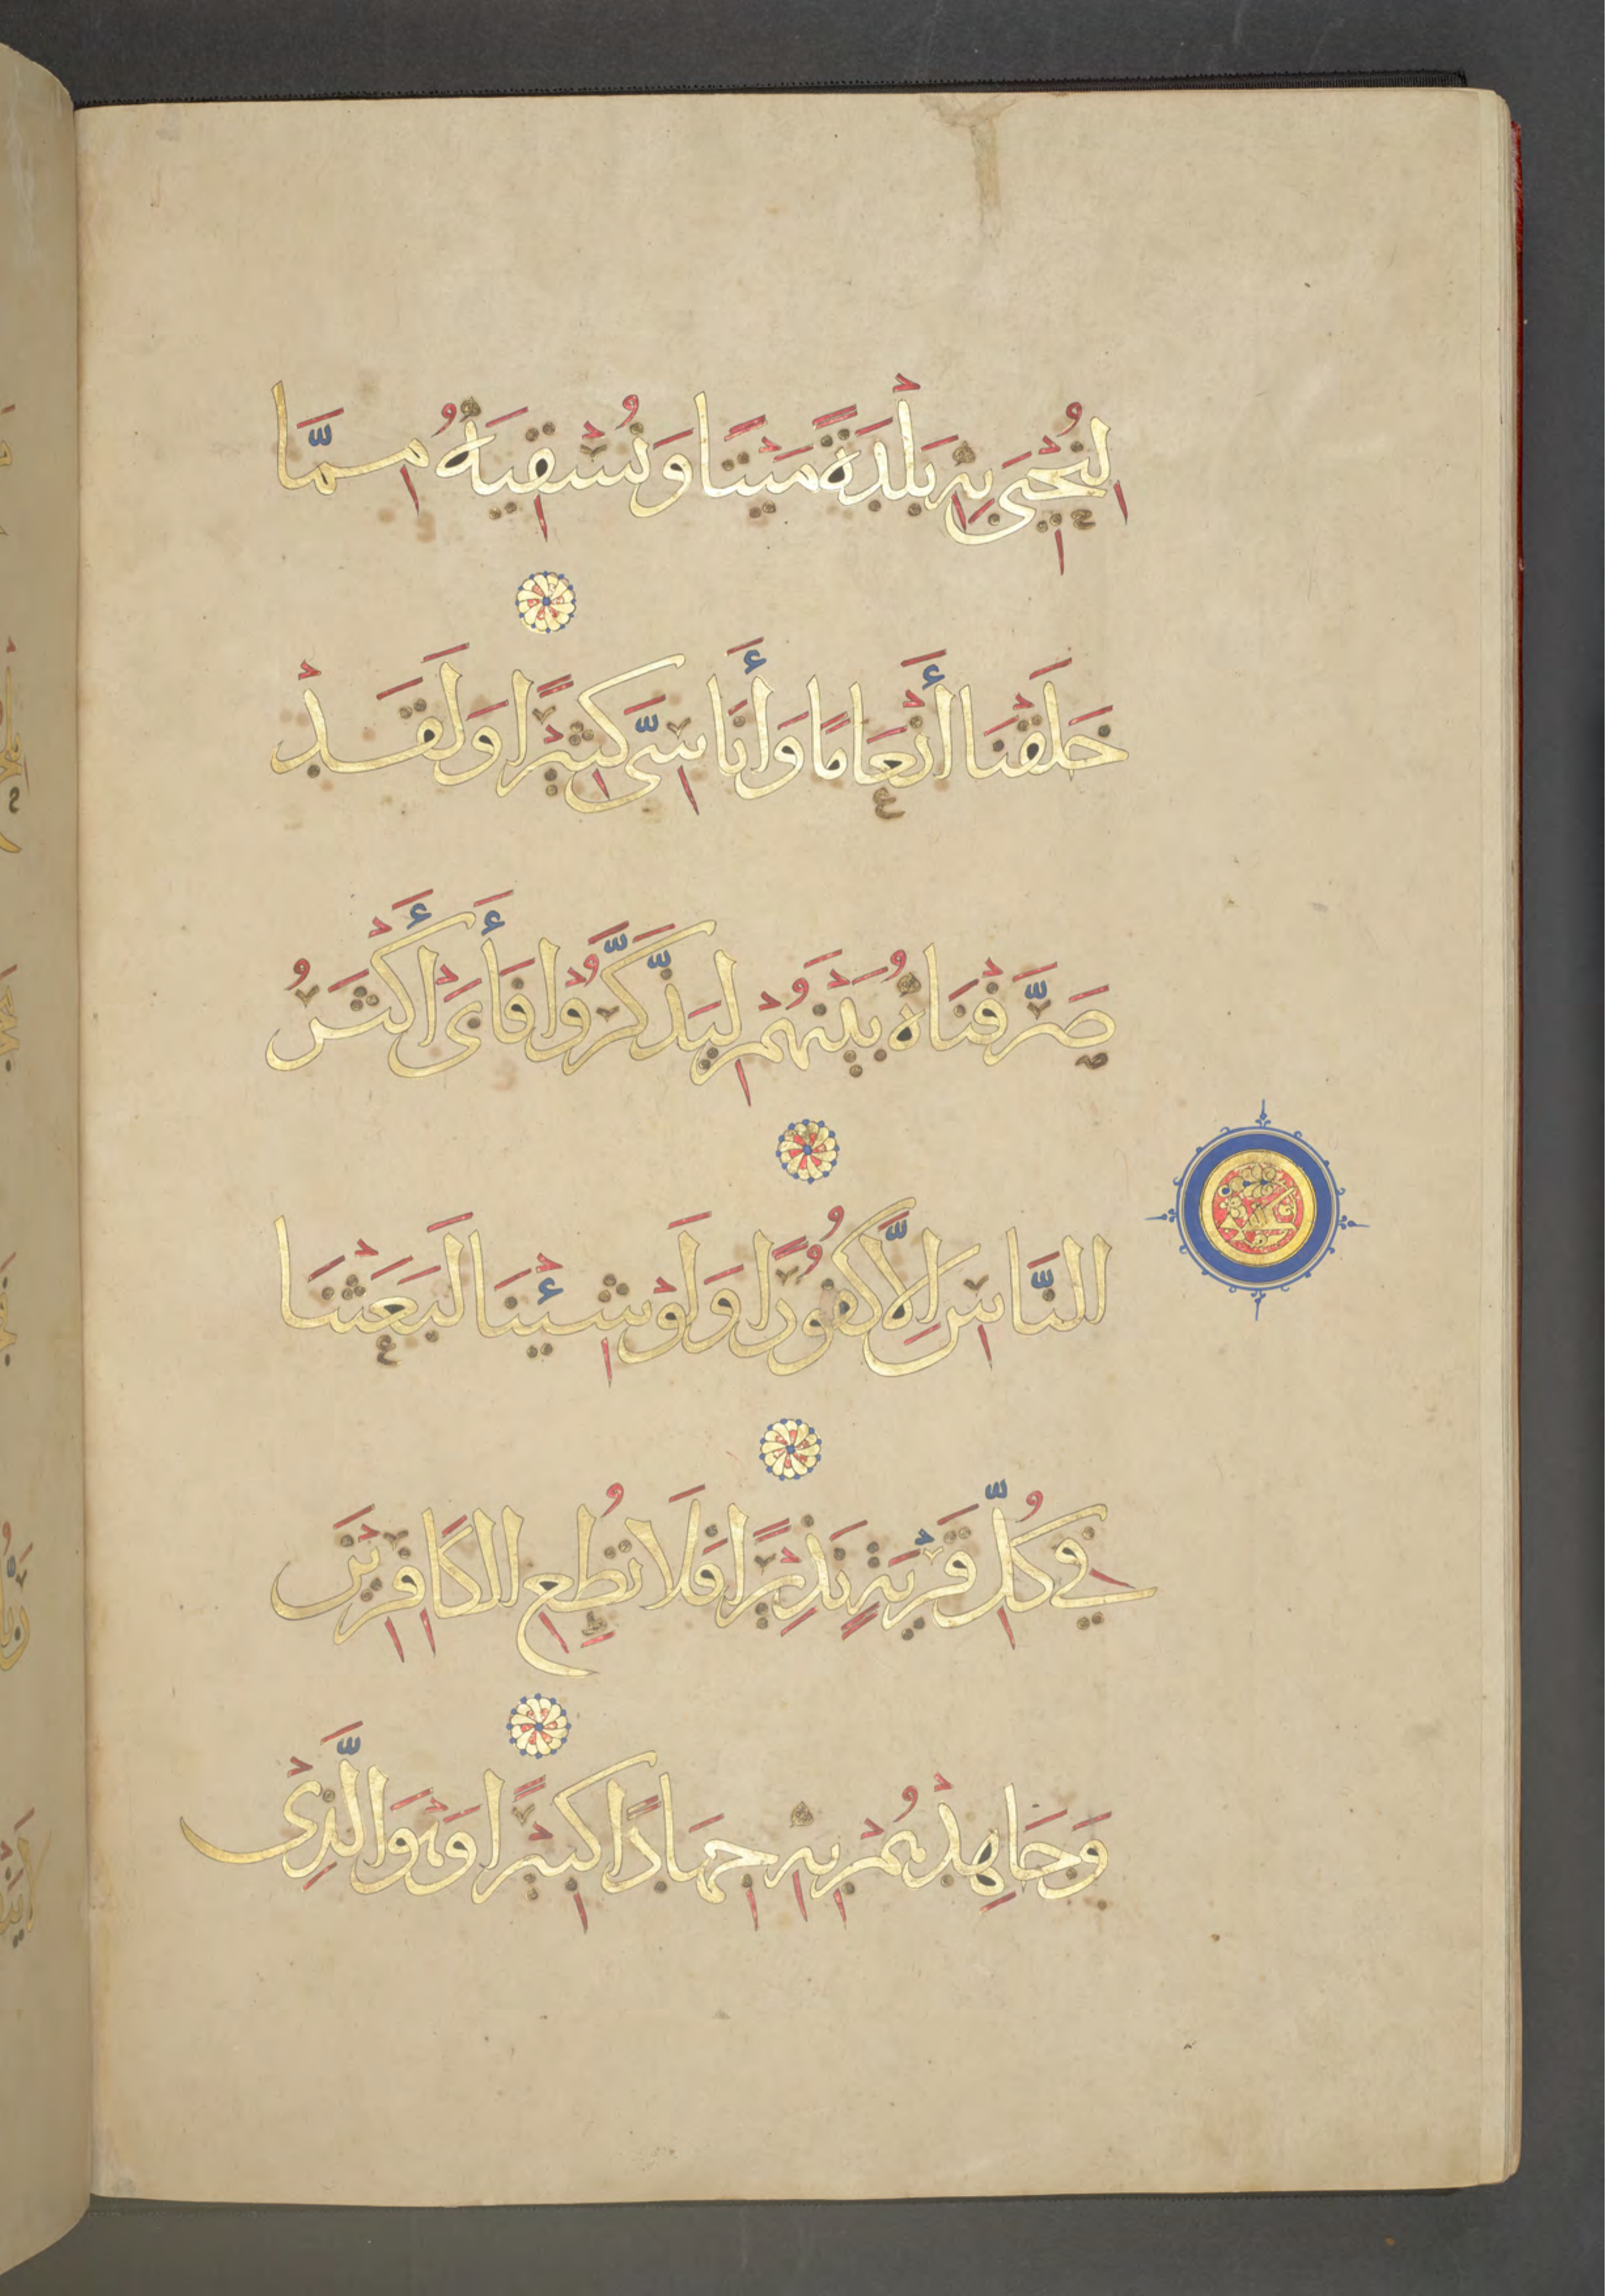 لِنُحْيِيَ بِهِ بَلْدَةً مَيْتًا وَنُسْقِيَهُ مِمَّا
خَلَقْنَا أَنْعَامًا وَأَنَاسِيَّ كَثِيرًا وَلَقَدْ
صَرَّفْنَاهُ بَيْنَهُمْ لِيَذَّكَّرُوا فَأَبَىٰ أَكْثَرُ
النَّاسِ إِلَّا كُفُورًا وَلَوْ شِئْنَا لَبَعَثْنَا
فِي كُلِّ قَرْيَةٍ نَذِيرًا فَلَا تُطِعِ الْكَافِرِينَ
وَجَاهِدْهُمْ بِهِ جِهَادًا كَبِيرًا وَهُوَ الَّذِي